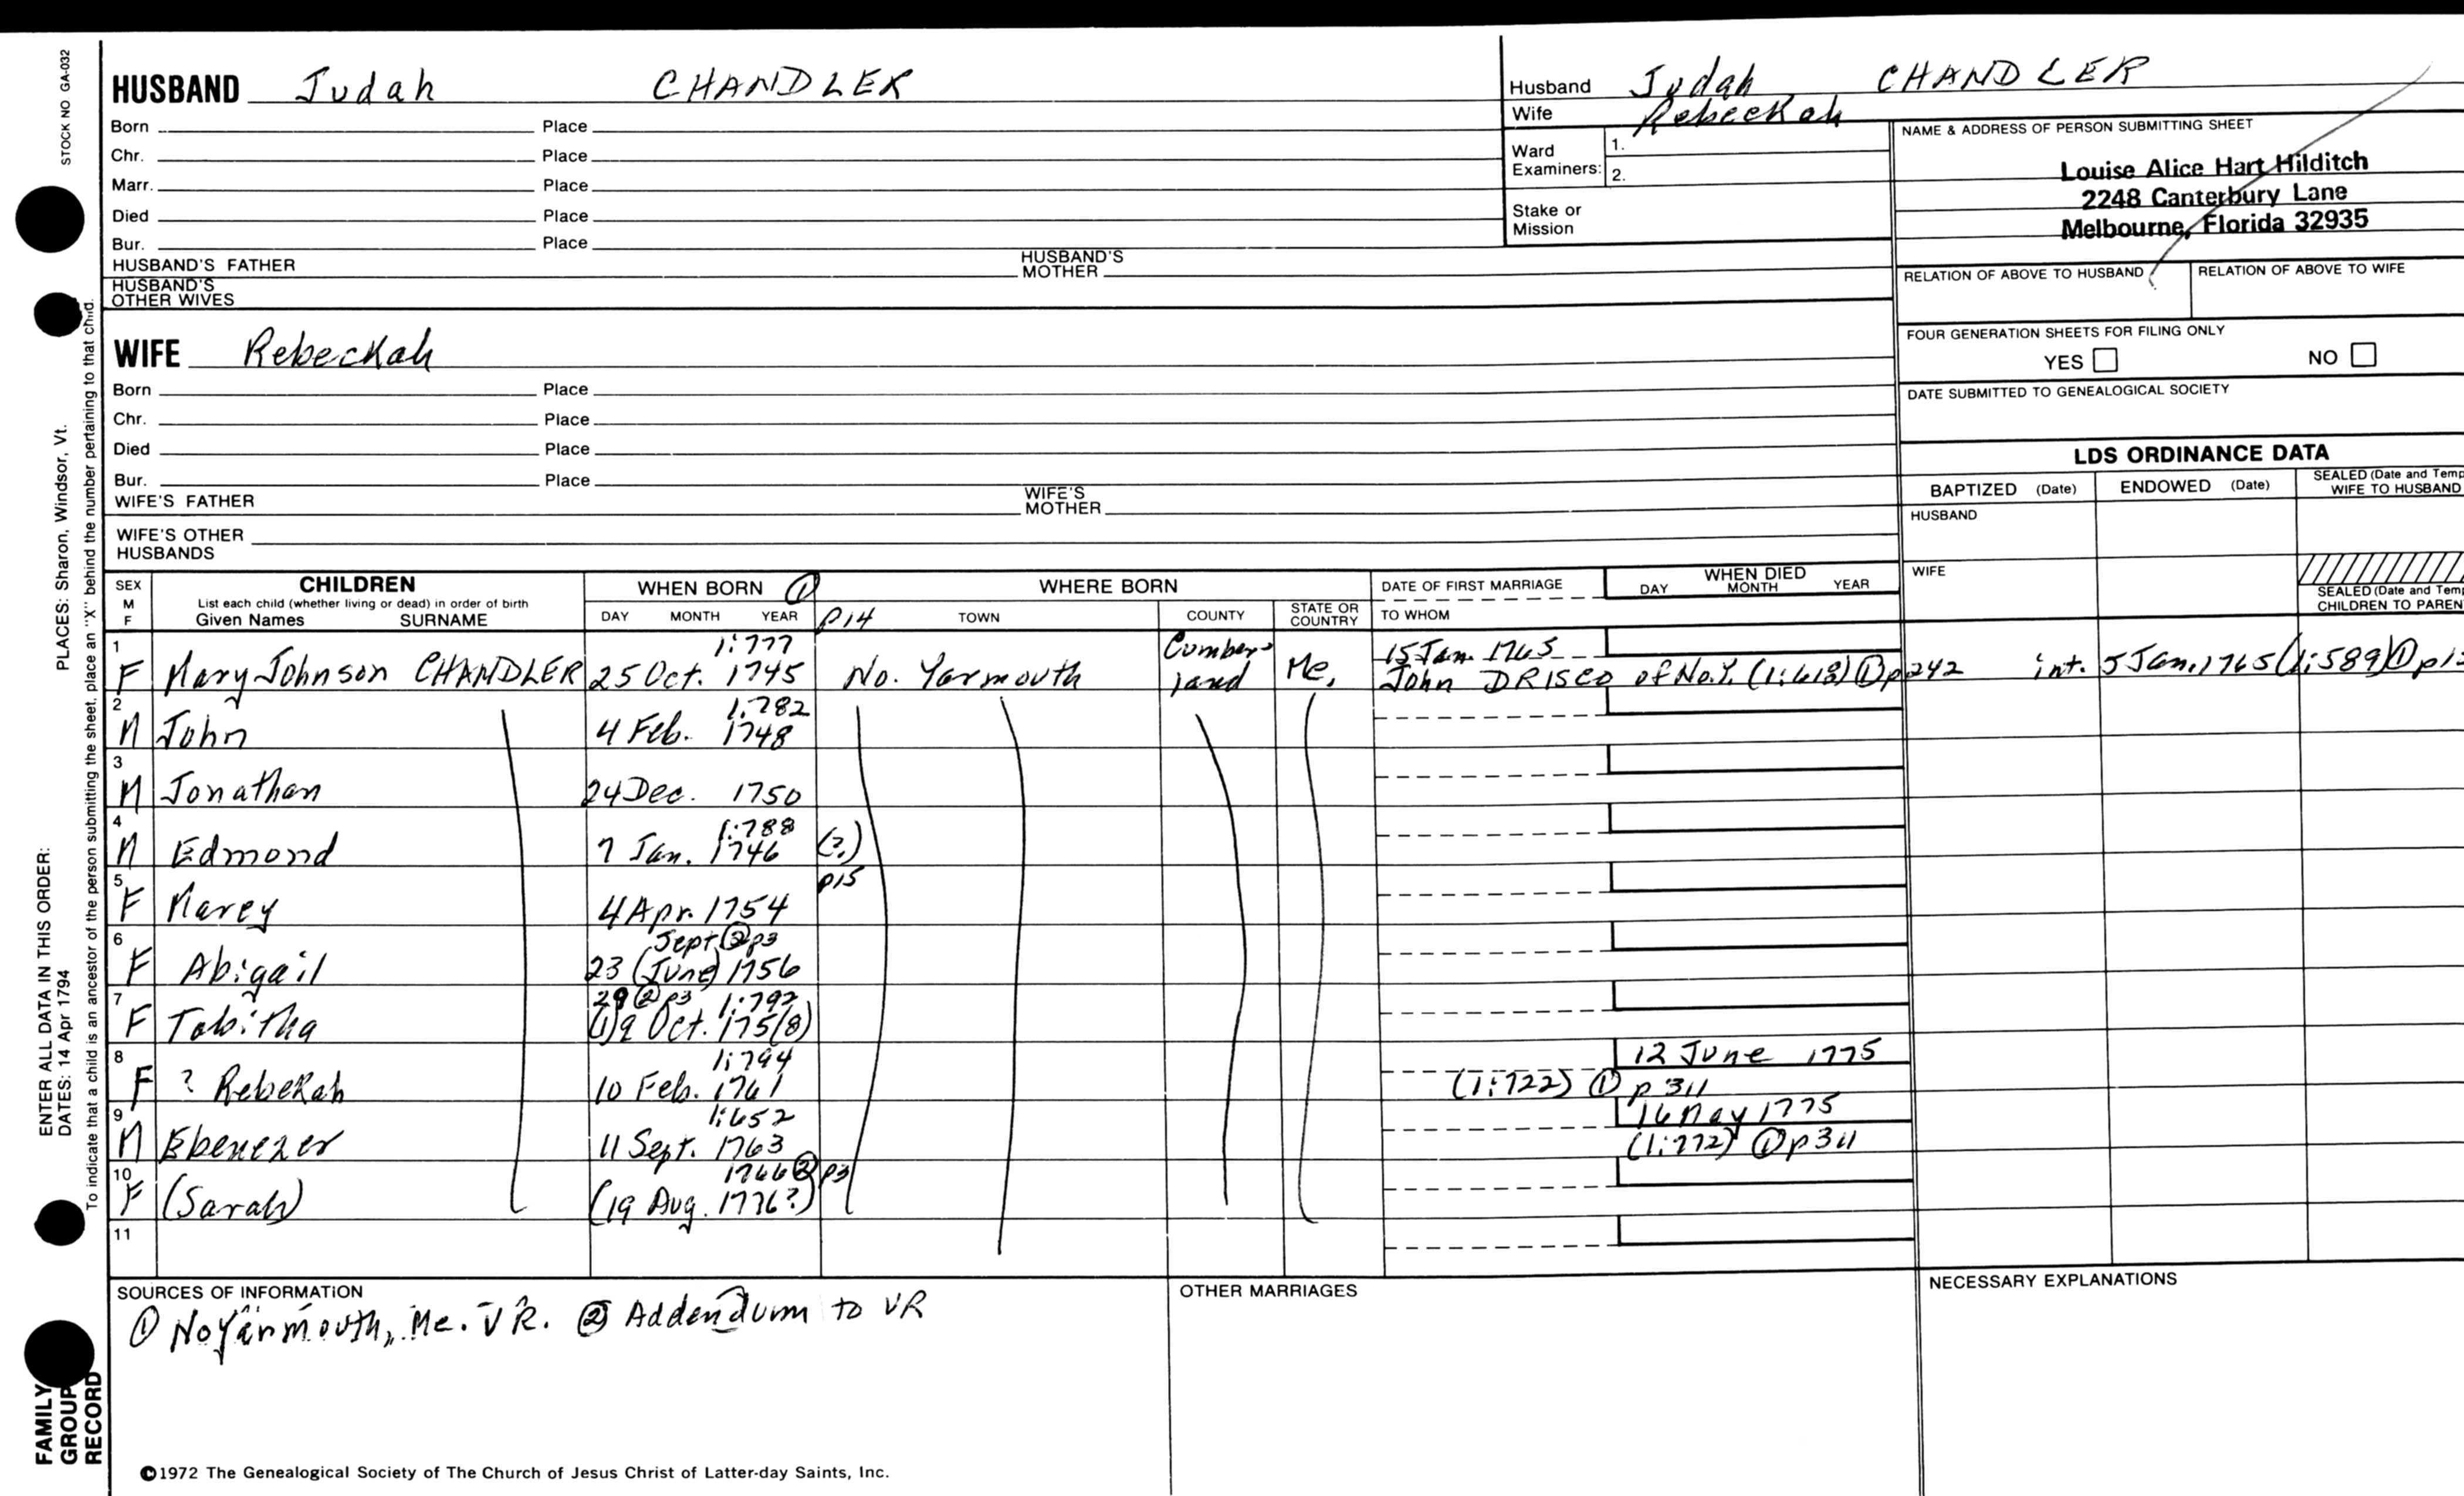 STOCK NO GA-032
PLACES: Sharon, Windsor, Vt.
ENTER ALL DATA IN THIS ORDER:
DATES: 14 Apr 1794
To indicate that a child is an ancestor of the person submitting the sheet, place an "X" behind the number pertaining to that child.
FAMILY
GROUP
RECORD
HUSBAND Judah CHANDLER
Born Place
Chr. Place
Marr. Place
Died Place
Bur. Place
HUSBAND'S FATHER HUSBAND'S MOTHER
HUSBAND'S
OTHER WIVES
Husband Judah CHANDLER
Wife Rebeckah
Ward
Examiners: 1.
2.
Stake or
Mission
NAME & ADDRESS OF PERSON SUBMITTING SHEET
Louise Alice Hart Hilditch
2248 Canterbury Lane
Melbourne, Florida 32935
RELATION OF ABOVE TO HUSBAND RELATION OF ABOVE TO WIFE
FOUR GENERATION SHEETS FOR FILING ONLY
YES NO
DATE SUBMITTED TO GENEALOGICAL SOCIETY
WIFE Rebeckah
Born Place
Chr. Place
Died Place
Bur. Place
WIFE'S FATHER WIFE'S MOTHER
WIFE'S OTHER
HUSBANDS
LDS ORDINANCE DATA
BAPTIZED (Date) ENDOWED (Date) SEALED (Date and Temp
WIFE TO HUSBAND
HUSBAND
WIFE
SEALED (Date and Tem
CHILDREN TO PAREN
SEX
M
F
CHILDREN
List each child (whether living or dead) in order of birth
Given Names SURNAME
WHEN BORN ①
DAY MONTH YEAR
p14
WHERE BORN
TOWN COUNTY STATE OR COUNTRY
DATE OF FIRST MARRIAGE
TO WHOM
WHEN DIED
DAY MONTH YEAR
1 1:777 Cumber- 15 Jan. 1765
F Mary Johnson CHANDLER 25 Oct. 1745 No. Yarmouth land Me. John DRISCO of No.Y. (1:618) ① p242 int. 5 Jan. 1765 (1:589) ① p12
2 1:782
M John 4 Feb. 1748
3
M Jonathan 24 Dec. 1750
4 1:788
M Edmond 7 Jan. 1746 (?)
5 p15
F Marcy 4 Apr. 1754
6 Sept ② p3
F Abigail 23 (June) 1756
7 29 ② p3 1:792
F Tabitha (1)9 Oct. 175(8)
8 1:794 12 June 1775
F ? Rebekah 10 Feb. 1761 (1:722) ① p 311
9 1:652 16 May 1775
M Ebenezer 11 Sept. 1763 (1:772) ① p311
10 1766 ② p3
F (Sarah) (19 Aug. 1776?)
11
SOURCES OF INFORMATION
① No Yarmouth, Me. VR. ② Addendum to VR
OTHER MARRIAGES
NECESSARY EXPLANATIONS
©1972 The Genealogical Society of The Church of Jesus Christ of Latter-day Saints, Inc.